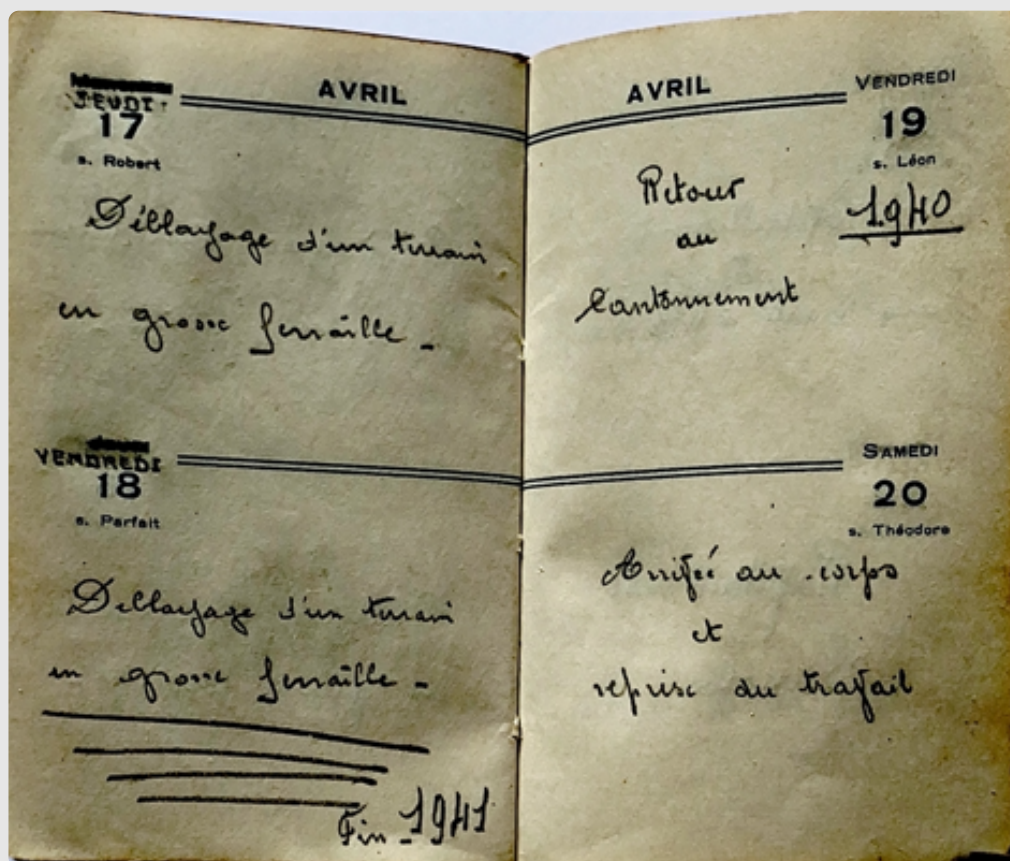 AVRIL
JEUDI
17
s. Robert
Déblayage d'un terrain
en grosse ferraille -
VENDREDI
18
s. Parfait
Déblayage d'un terrain
en grosse ferraille -
Fin - 1941
AVRIL
VENDREDI
19
s. Léon
1940
Retour
au
Cantonnement
SAMEDI
20
s. Théodore
Arrivée au corps
et
reprise du travail